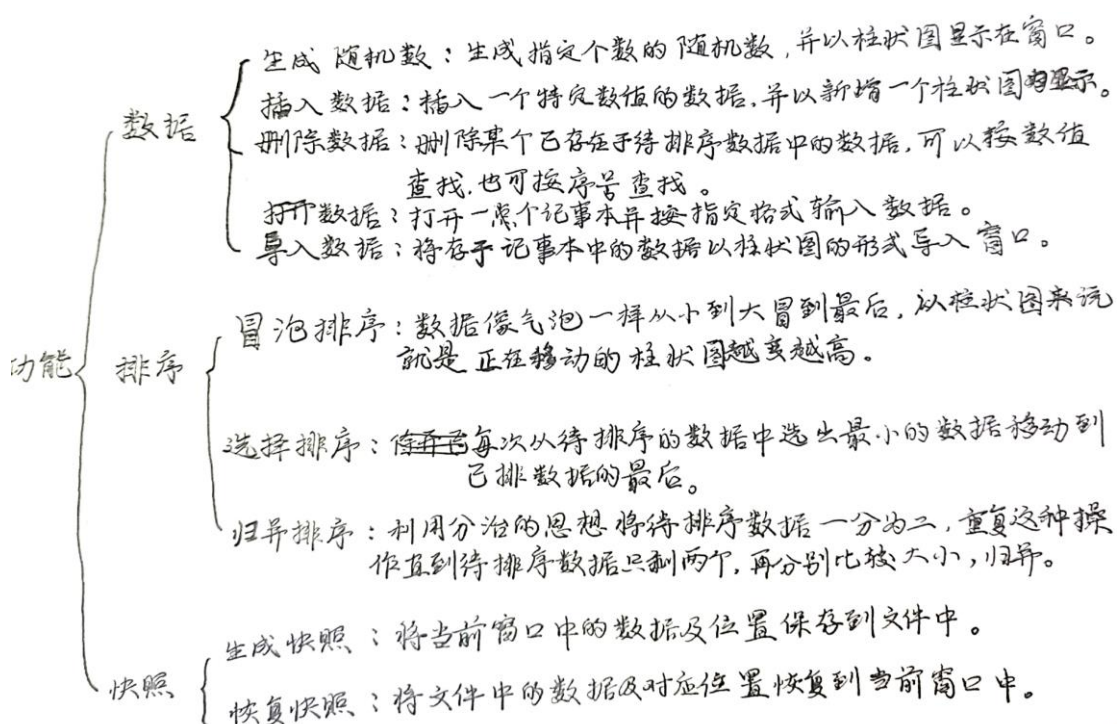 生成随机数：生成指定个数的随机数，并以柱状图显示在窗口。
插入数据：插入一个特定数值的数据，并以新增一个柱状图显示。
数据
删除数据：删除某个已存在于待排序数据中的数据，可以按数值
查找，也可按序号查找。
打开数据：打开一个记事本并按指定格式输入数据。
导入数据：将存于记事本中的数据以柱状图的形式导入窗口。
冒泡排序：数据像气泡一样从小到大冒到最后，以柱状图来说
就是正在移动的柱状图越变越高。
功能
排序
选择排序：每次从待排序的数据中选出最小的数据移动到
已排数据的最后。
归并排序：利用分治的思想将待排序数据一分为二，重复这种操
作直到待排序数据只剩两个，再分别比较大小，归并。
生成快照：将当前窗口中的数据及位置保存到文件中。
快照
恢复快照：将文件中的数据及对应位置恢复到当前窗口中。